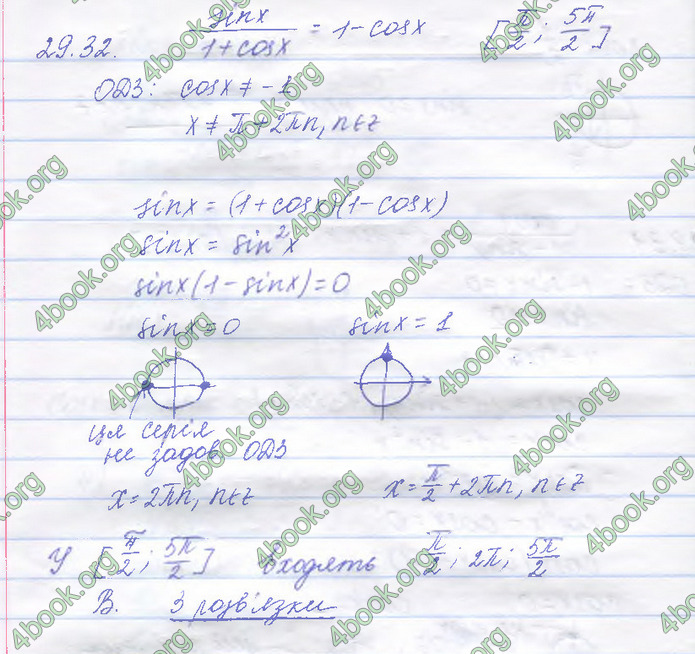 29.32. sinx/(1+cosx) = 1-cosx [π/2; 5π/2]
ОДЗ: cosx ≠ -1
x ≠ π + 2πn, n∈z
sinx = (1+cosx)(1-cosx)
sinx = sin²x
sinx(1-sinx)=0
sinx=0 sinx=1
ця серія
не задов. ОДЗ
x=2πn, n∈z x=π/2+2πn, n∈z
У [π/2; 5π/2] входять π/2; 2π; 5π/2
В. 3 розв'язки
4book.org